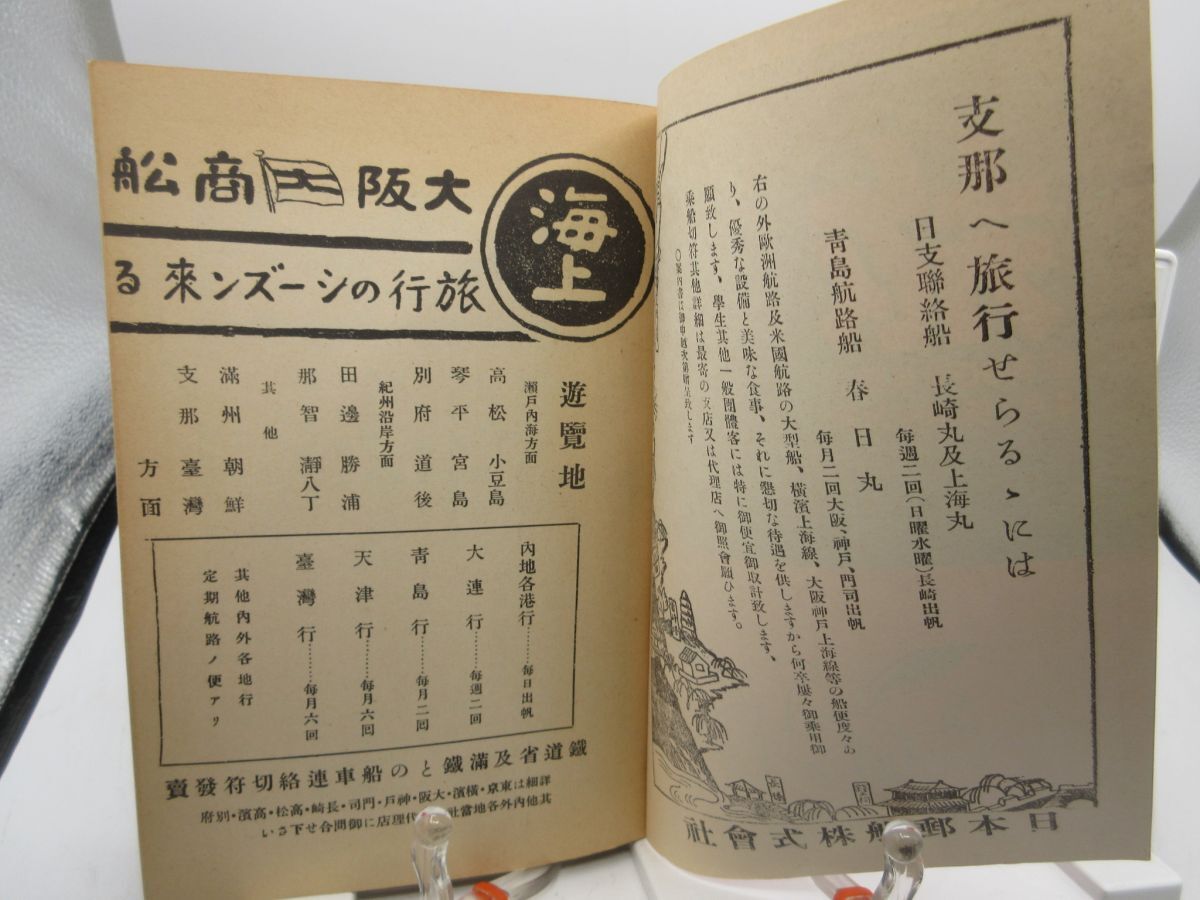 支那へ旅行せらるゝには
日支聯絡船 長崎丸及上海丸
每週二回(日曜水曜)長崎出帆
靑島航路船 春日丸
每月二回大阪、神戶、門司出帆
右の外歐洲航路及米國航路の大型船、橫濱上海線、大阪神戶上海線等の船便度々あ
り、優秀な設備と美味な食事、それに懇切な待遇を供しますから何卒屢々御乘用御
願致します、學生其他一般團體客には特に御便宜御取計致します、
乘船切符其他詳細は最寄の支店又は代理店へ御照會願ひます。
〇案內書は御申越次第贈呈致します
日本郵船株式會社
海上
大阪商船
旅行のシーズン來る
遊覽地
瀨戶內海方面
高松 小豆島
琴平 宮島
別府 道後
紀州沿岸方面
田邊 勝浦
那智 瀞八丁
其他
滿州 朝鮮
支那 臺灣
方面
內地各港行……每日出帆
大連行……每週二回
靑島行……每月二回
天津行……每月六回
臺灣行……每月六回
其他內外各地行
定期航路ノ便アリ
鐵道省及滿鐵との船車連絡切符發賣
詳細は東京・橫濱・大阪・神戶・門司・長崎・高松・高濱・別府
其他內外各地當社 代理店に御問合せ下さい